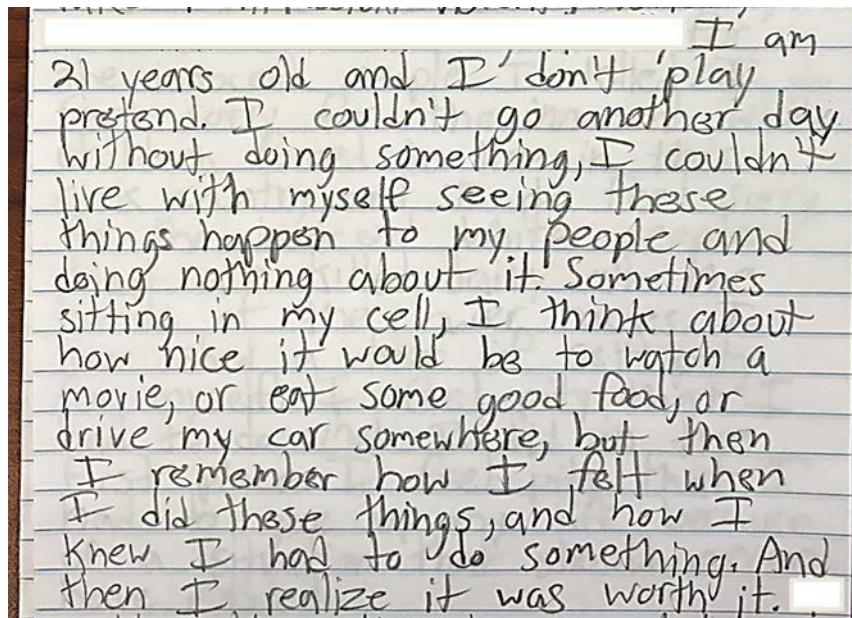 I am
21 years old and I don't play
pretend. I couldn't go another day
without doing something, I couldn't
live with myself seeing these
things happen to my people and
doing nothing about it. Sometimes
sitting in my cell, I think about
how nice it would be to watch a
movie, or eat some good food, or
drive my car somewhere, but then
I remember how I felt when
I did these things, and how I
knew I had to do something. And
then I realize it was worth it.